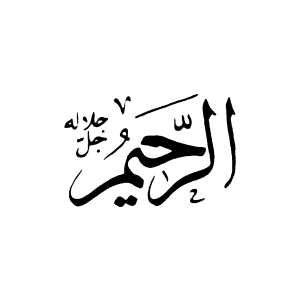 الرَّحِيمُ
جل جلاله